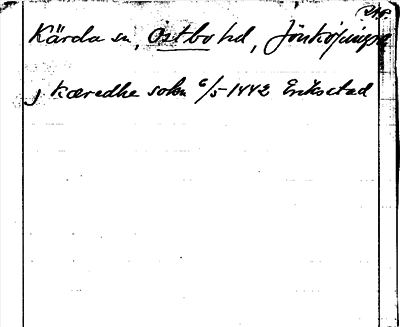 Kärda sn, Östbo hd, Jönköpings
j kæredhe sokn 6/5-1442 Erikstad